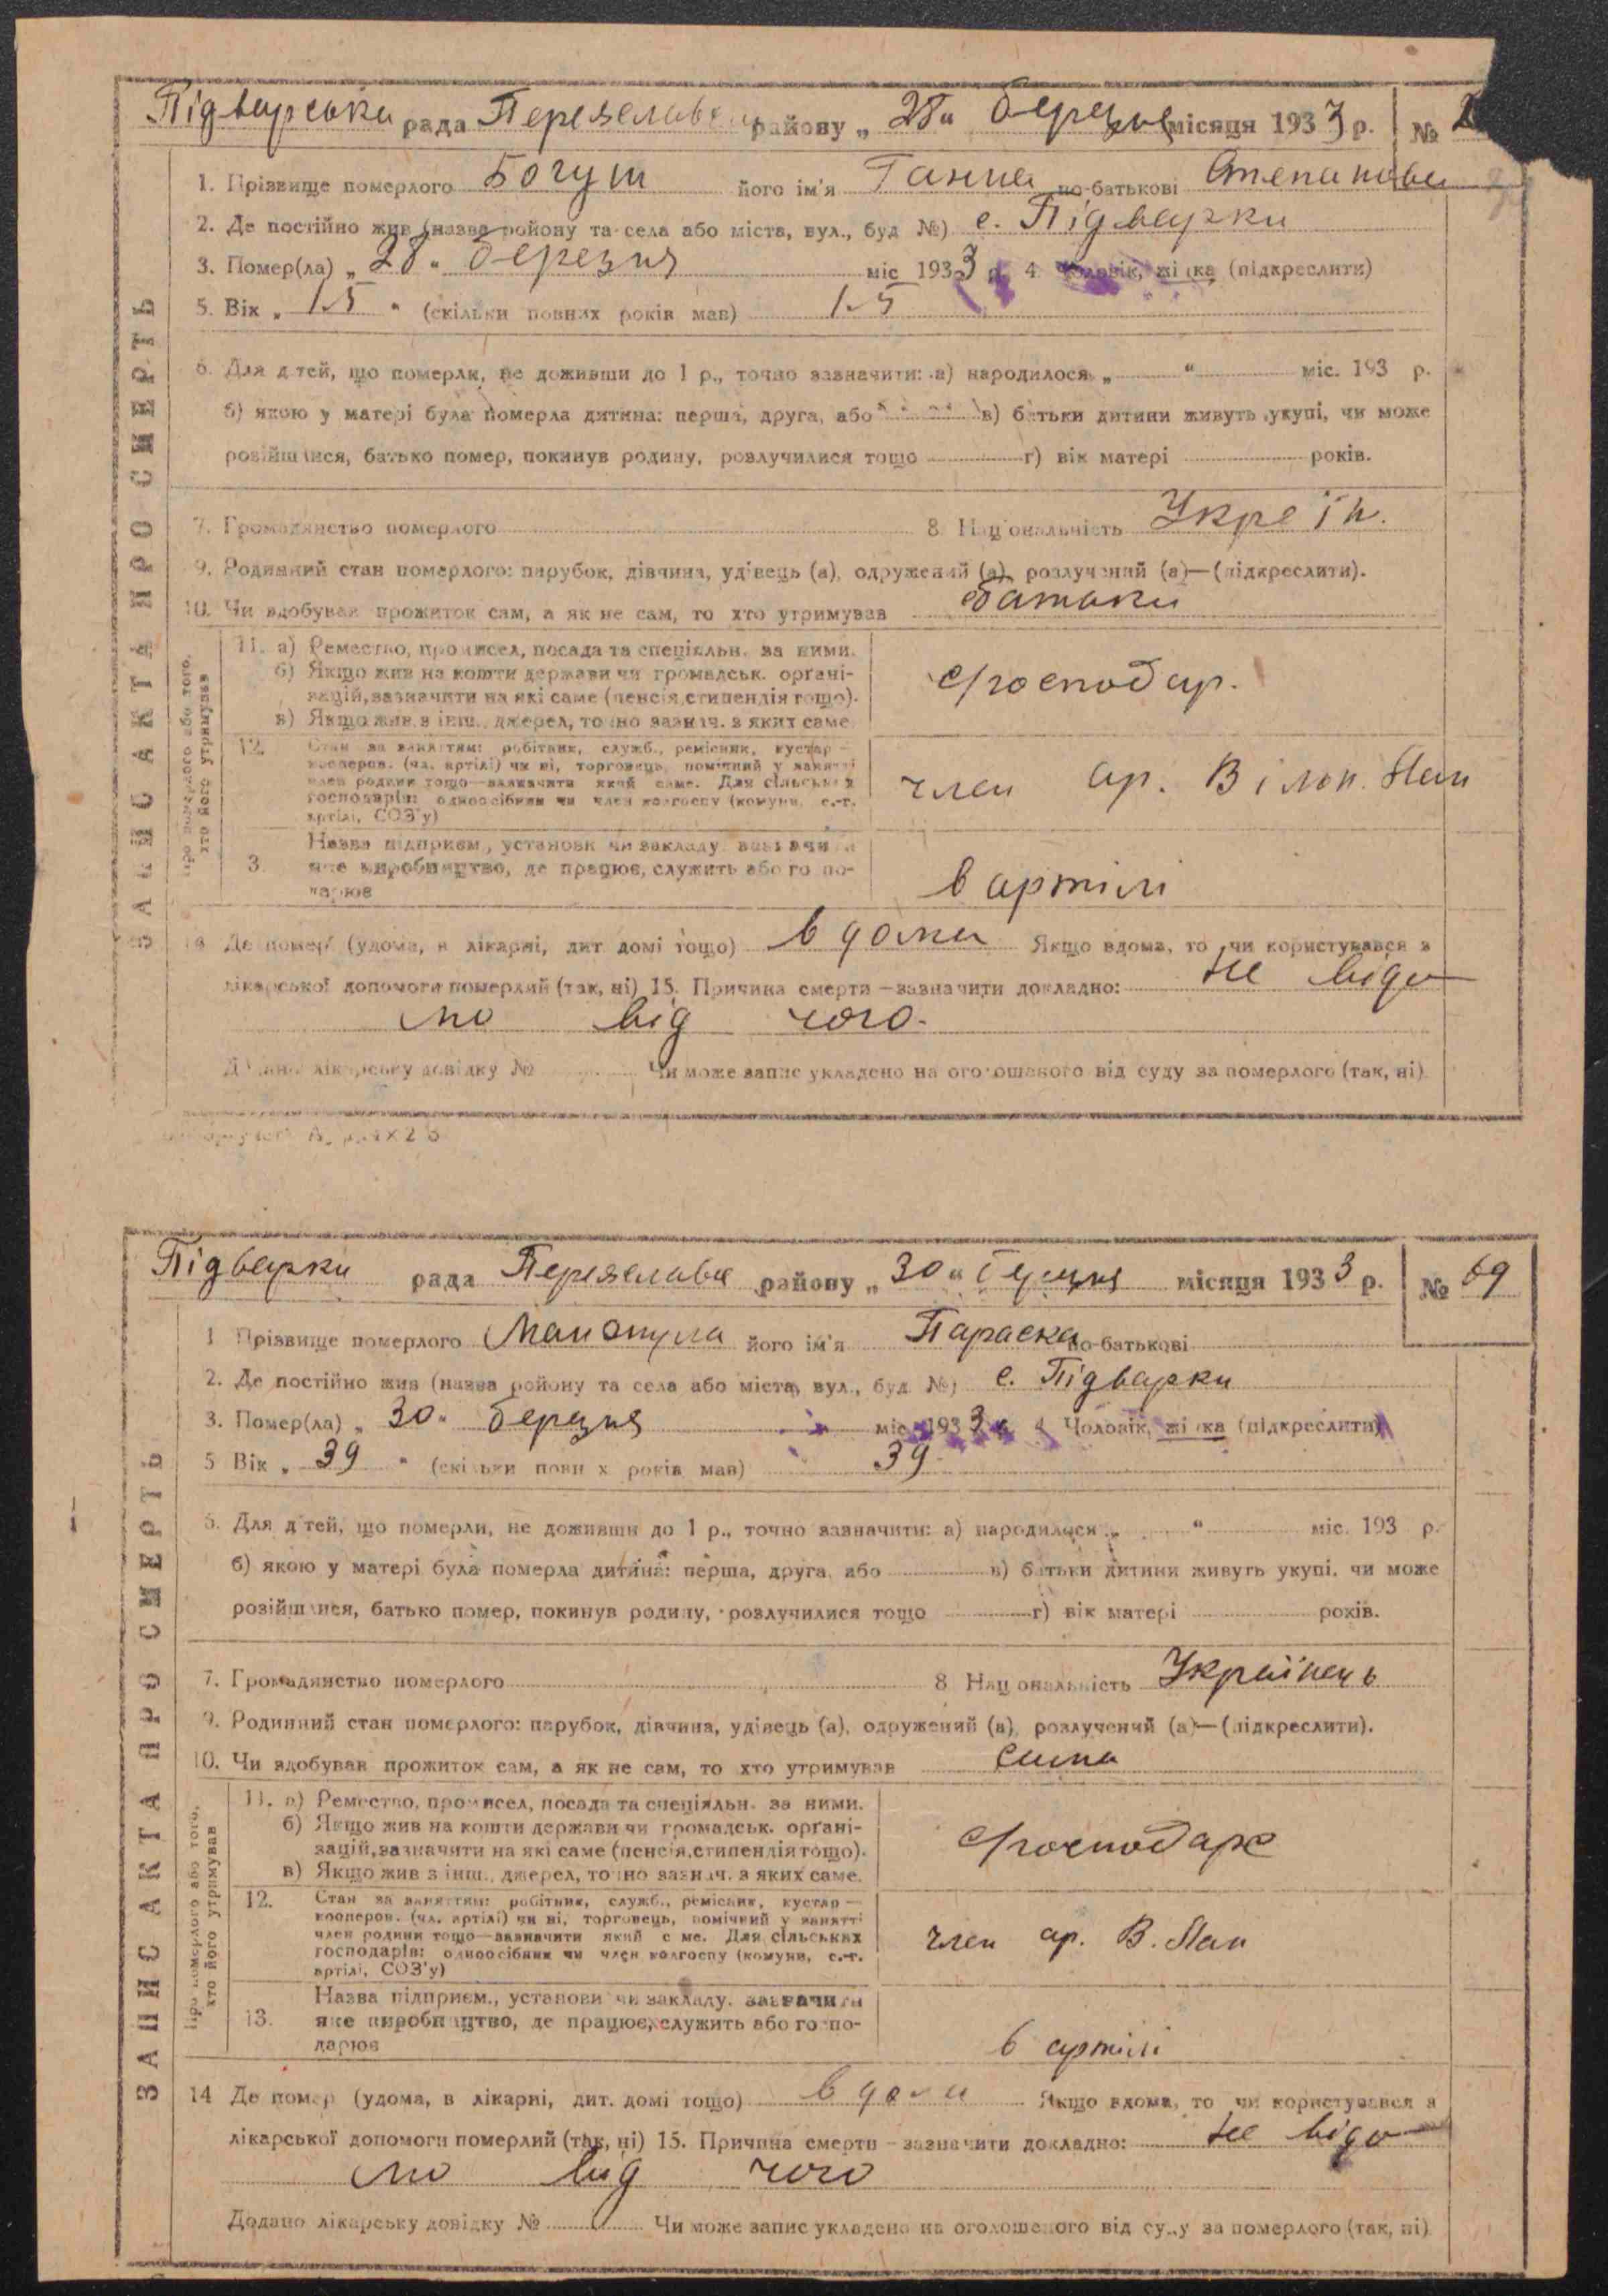 Підварська рада Переяславськ району „ 28 “ березня місяця 1933 р. №
1. Прізвище померлого Богуш його ім'я Ганна по-батькові Степанова
2. Де постійно жив (назва ройону та села або міста, вул., буд №) с. Підварки
3. Помер(ла) „ 28 “ березня міс 1933 р. 4. Чоловік, жінка (підкреслити)
5. Вік „ 15 “ (скільки повних років мав) 15
6. Для дітей, що померли, не доживши до 1 р., точно зазначити: а) народилося „ “ міс. 193 р.
б) якою у матері була померла дитина: перша, друга, або в) батьки дитини живуть укупі, чи може
розійшлися, батько помер, покинув родину, розлучилися тощо г) вік матері років.
7. Громадянство померлого 8. Національність Україн.
9. Родинний стан померлого: парубок, дівчина, удівець (а), одружений (а), розлучений (а)—(підкреслити).
10. Чи здобував прожиток сам, а як не сам, то хто утримував батьки
ЗАПИС АКТА ПРО СМЕРТЬ
Про померлого або того, хто його утримував
11. а) Ремество, промисел, посада та спеціяльн. за ними.
б) Якщо жив на кошти держави чи громадськ. органі-
зацій, зазначити на які саме (пенсія, стипендія тощо).
в) Якщо жив з інш. джерел, точно зазнач. з яких саме.
хоесподар.
12. Стан за заняттям: робітник, служб., ремісник, кустар —
кооперов. (чл. артілі) чи ні, торговець, помічний у занятті
член родини тощо—зазначити який саме. Для сільських
господарів: одноосібник чи член колгоспу (комуни, с.-г.
артілі, СОЗ'у)
член ар. Вільн. Лан
3. Назва підприєм., установи чи закладу, зазначити
яке виробництво, де працює, служить або госпо-
дарює
в артілі
14 Де помер (удома, в лікарні, дит домі тощо) вдома Якщо вдома, то чи користувався з
лікарської допомоги померлий (так, ні) 15. Причина смерти — зазначити докладно: не відо
мо від чого.
Додано лікарську довідку № Чи може запис укладено на оголошеного від суду за померлого (так, ні)
Підварки рада Переяславс району „ 30 “ березня місяця 1933 р. № 69
1 Прізвище померлого його ім'я Параска по-батькові
2. Де постійно жив (назва ройону та села або міста, вул., буд №) с. Підварки
3. Помер(ла) „ 30 “ березня міс 1933 р. 4 Чоловік, жінка (підкреслити)
5 Вік „ 39 “ (скільки повних років мав) 39
6. Для дітей, що померли, не доживши до 1 р., точно зазначити: а) народилося „ “ міс. 193 р.
б) якою у матері була померла дитина: перша, друга, або в) батьки дитини живуть укупі, чи може
розійшлися, батько помер, покинув родину, розлучилися тощо г) вік матері років.
7. Громадянство померлого 8 Національність Українець
9. Родинний стан померлого: парубок, дівчина, удівець (а), одружений (а), розлучений (а)—(підкреслити).
10. Чи здобував прожиток сам, а як не сам, то хто утримував сама
ЗАПИС АКТА ПРО СМЕРТЬ
Про померлого або того, хто його утримував
11. а) Ремество, промисел, посада та спеціяльн. за ними.
б) Якщо жив на кошти держави чи громадськ. органі-
зацій, зазначити на які саме (пенсія, стипендія тощо).
в) Якщо жив з інш. джерел, точно зазнач. з яких саме.
12. Стан за заняттям: робітник, служб., ремісник, кустар —
кооперов. (чл. артілі) чи ні, торговець, помічний у занятті
член родини тощо—зазначити який саме. Для сільських
господарів: одноосібник чи член колгоспу (комуни, с.-г.
артілі, СОЗ'у)
член ар. В. Лан
13. Назва підприєм., установи чи закладу, зазначити
яке виробництво, де працює, служить або госпо-
дарює
в артілі
14 Де помер (удома, в лікарні, дит. домі тощо) вдома Якщо вдома, то чи користувався з
лікарської допомоги померлий (так, ні) 15. Причина смерти — зазначити докладно: не відо
мо від чого
Додано лікарську довідку № Чи може запис укладено на оголошеного від суду за померлого (так, ні)